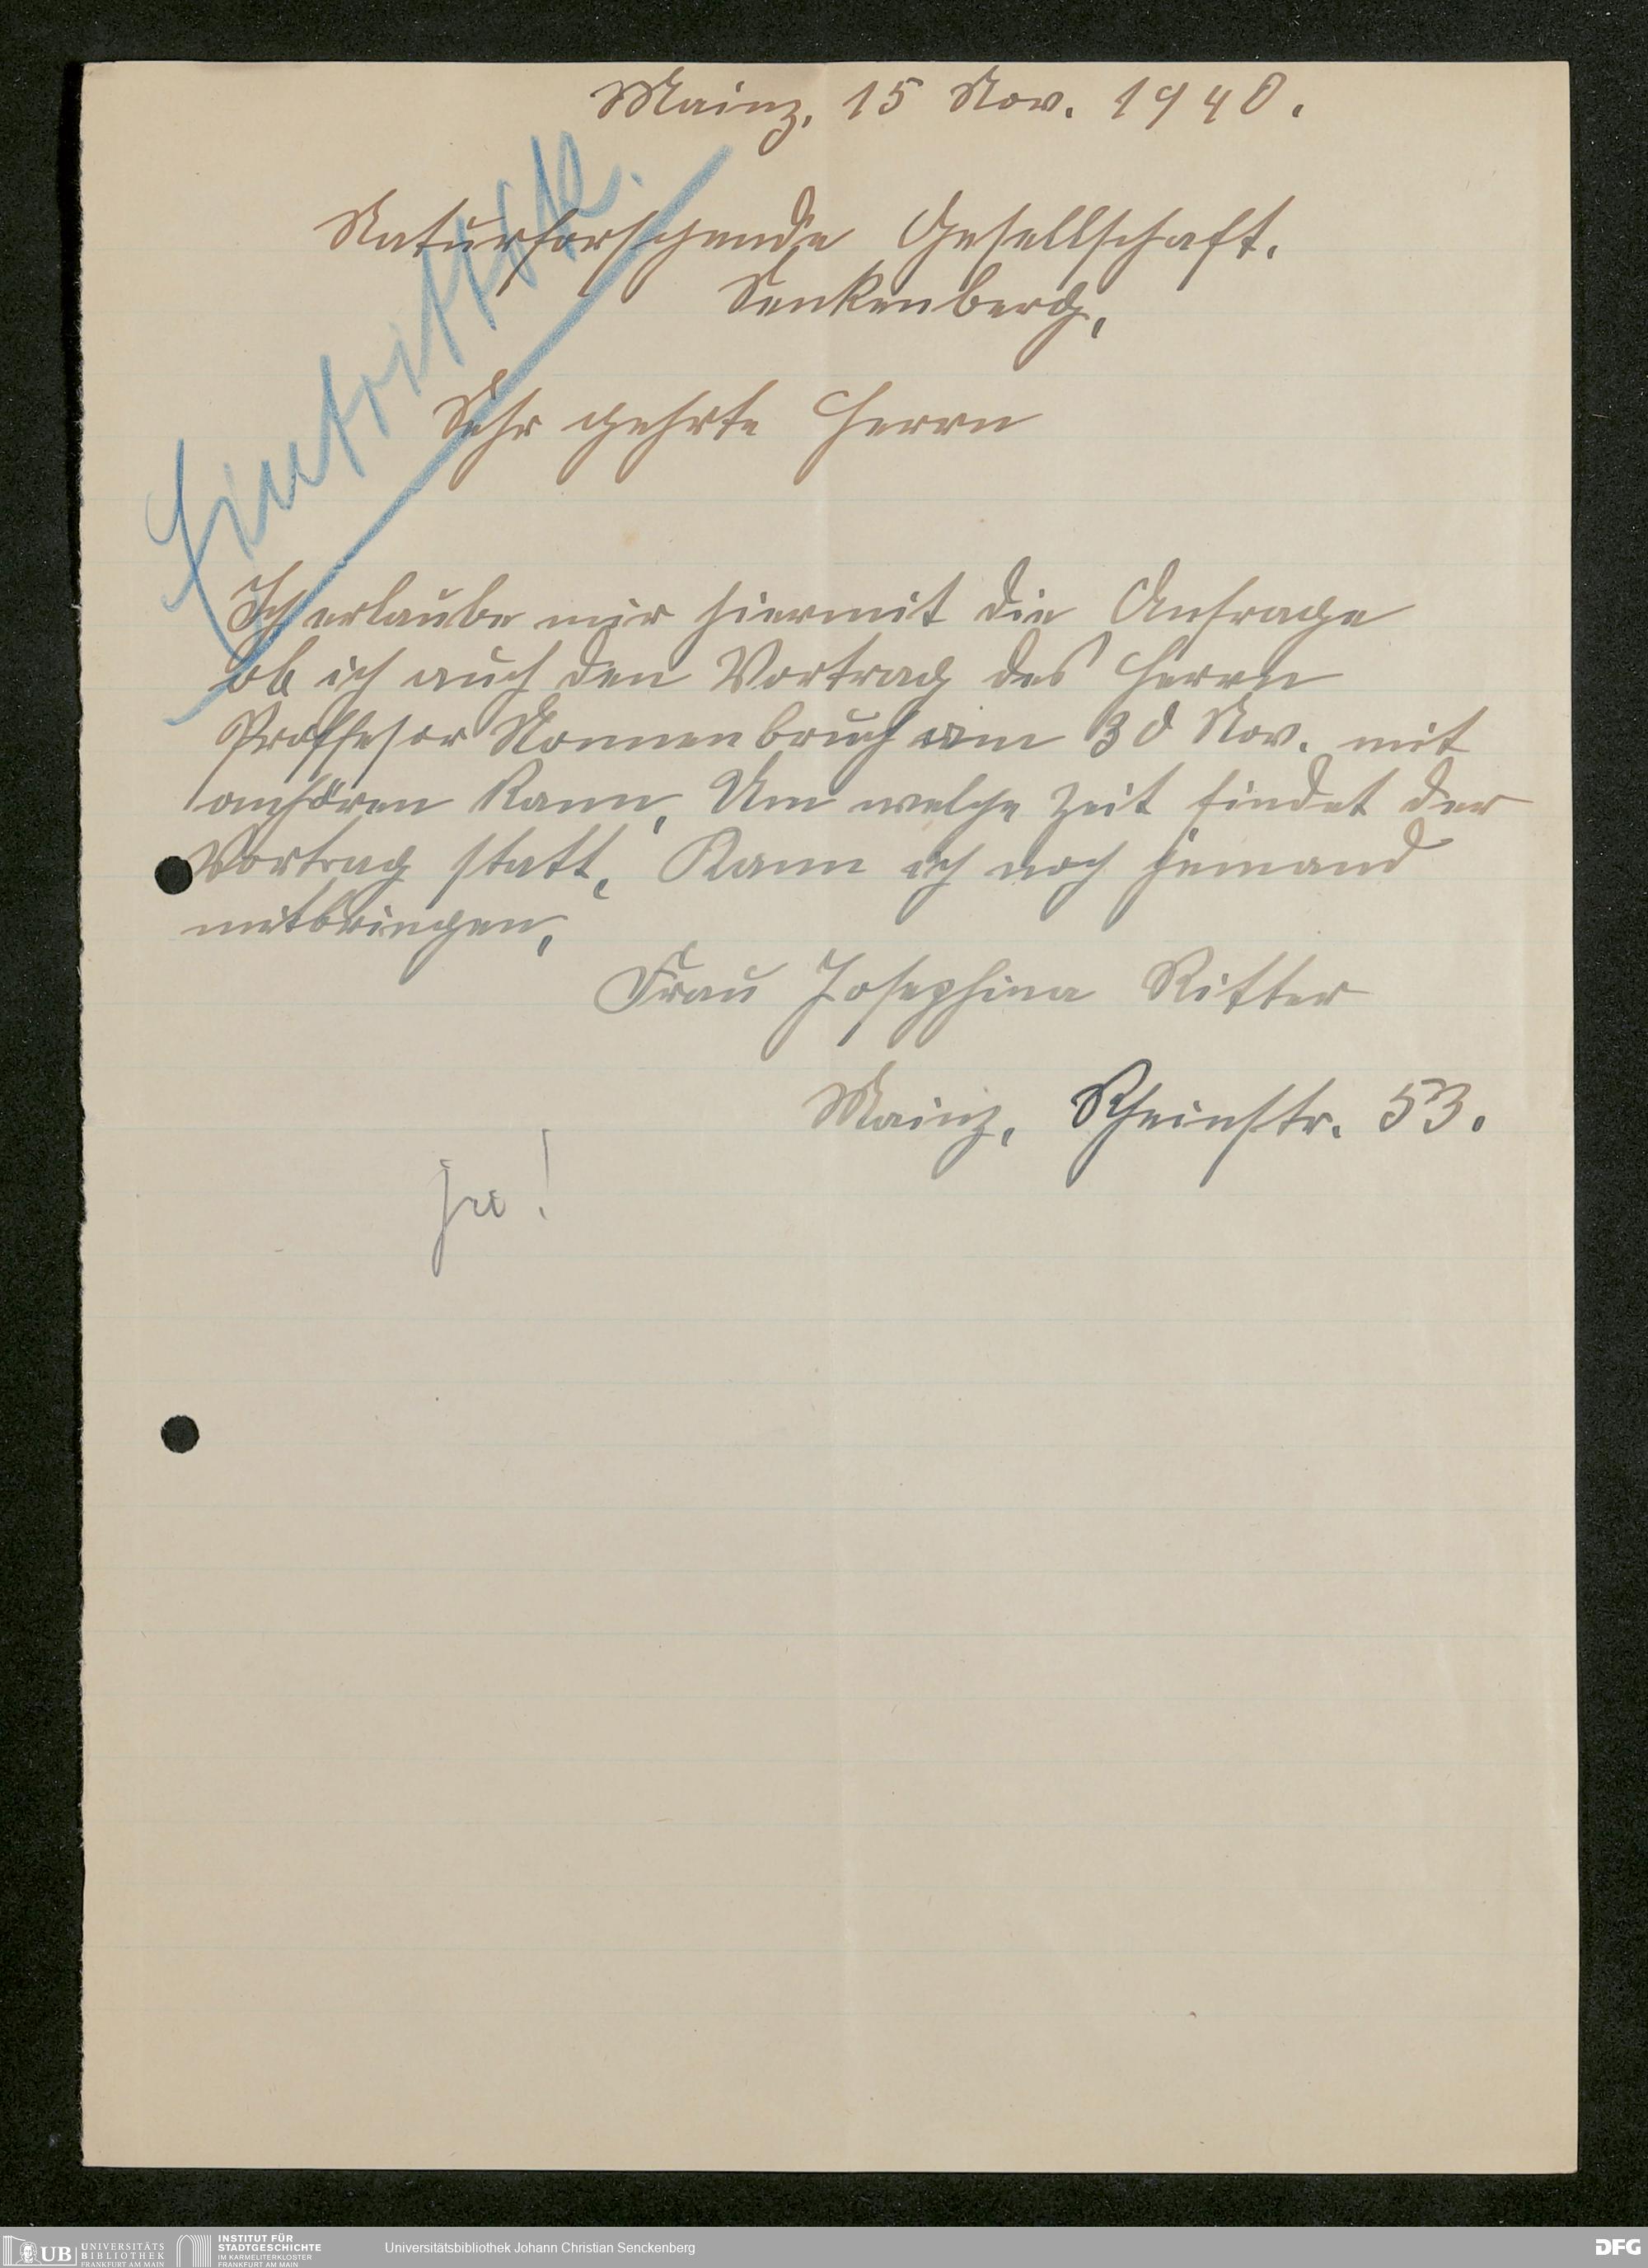 Mainz, 15 Nov. 1940.
Naturforschende Gesellschaft.
Senkenberg,
Sehr gehrte Herrn
Ich erlaube mir hiermit die Anfrage
ob ich auch den Vortrag des Herrn
Proffesor Nonnenbruch am 30 Nov. mit
anhören kann, Um welche Zeit findet der
Vortrag statt, Kann ich noch jemand
mitbringen,
Frau Josephina Ritter
Mainz, Rheinstr. 53.
ja!
UB UNIVERSITÄTS
BIBLIOTHEK
FRANKFURT AM MAIN
INSTITUT FÜR
STADTGESCHICHTE
IM KARMELITERKLOSTER
FRANKFURT AM MAIN
Universitätsbibliothek Johann Christian Senckenberg
DFG